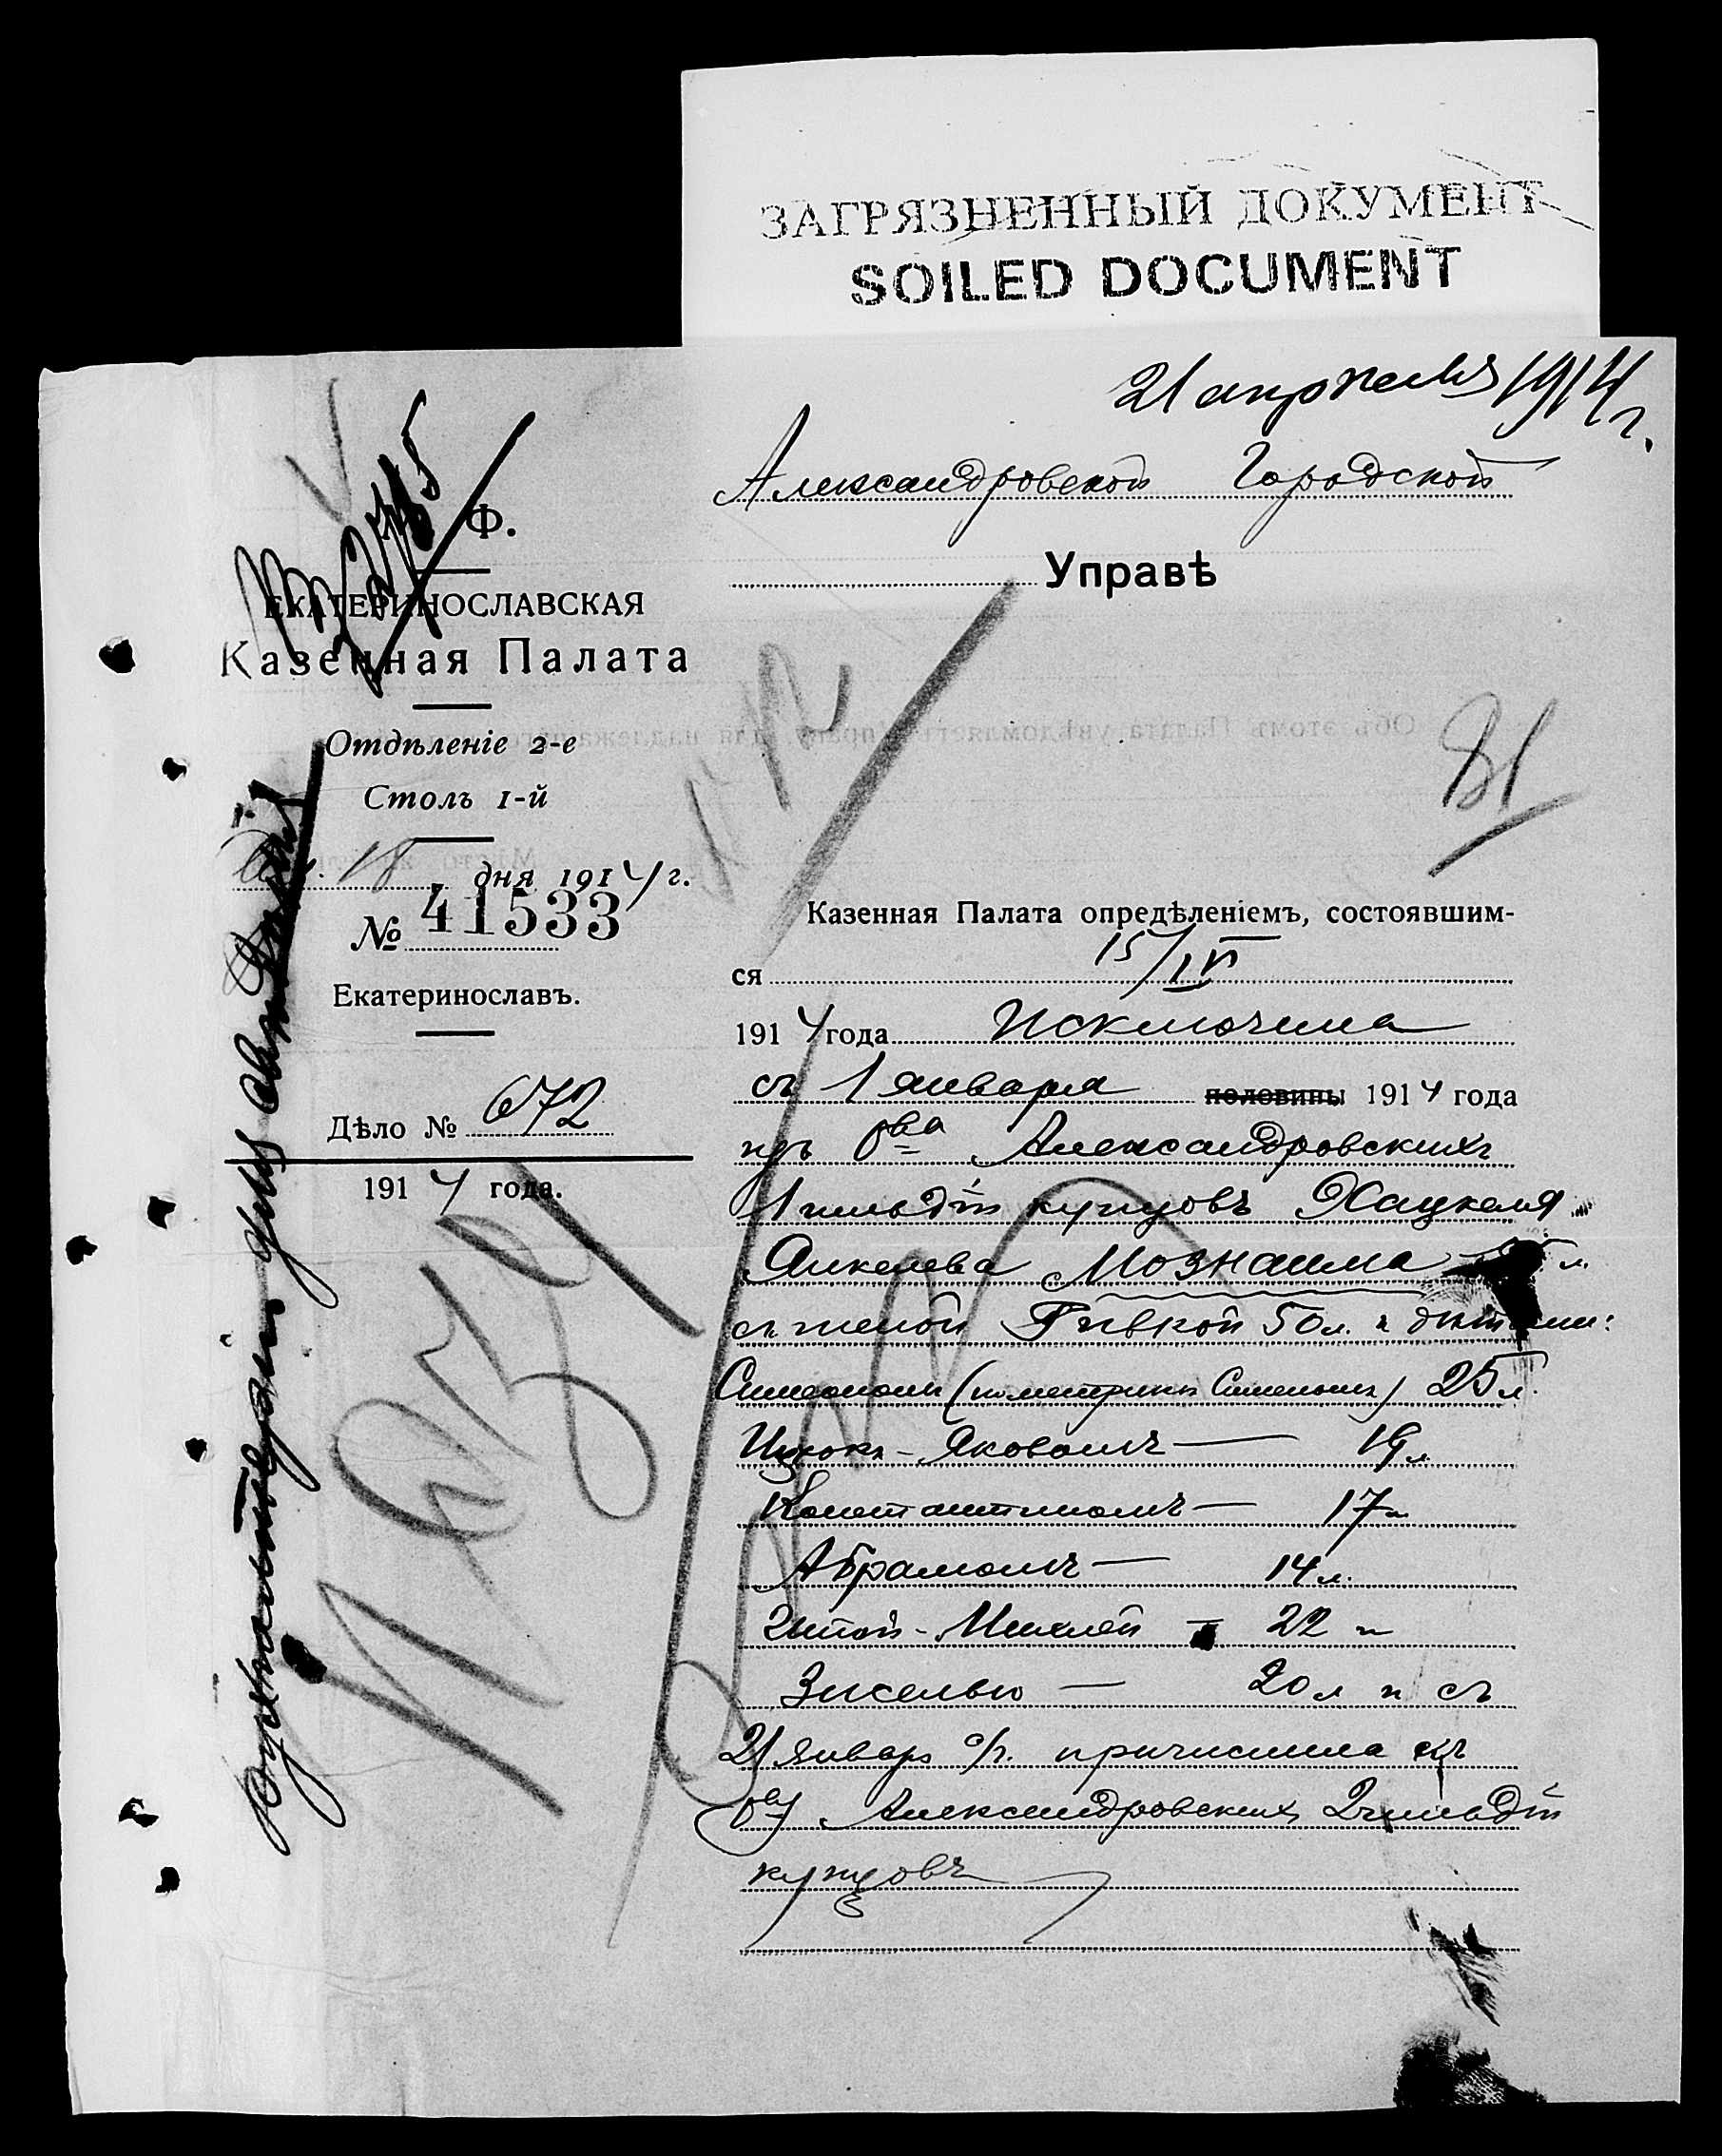 ЗАГРЯЗНЕННЫЙ ДОКУМЕНТ
SOILED DOCUMENT
21 апрѣля 1914 г.
Александровской Городской
Управѣ
Ф.
ЕКАТЕРИНОСЛАВСКАЯ
Казенная Палата
Отдѣленіе 2-е
Столъ 1-й
18 дня 1914 г.
№ 41533
Екатеринославъ.
Дѣло № 672
1914 года.
81
Казенная Палата опредѣленіемъ, состоявшим-
ся 15/IV
1914 года исключила
съ 1 января половины 1914 года
изъ о-ва Александровскихъ
1 гильдіи купцовъ Хацкеля
Янкелева Мознаима л.
съ женой Ривкой 50 л. и дѣтьми:
Симеономъ (по метрикѣ Сименомъ) 25 л.
Ицхокъ-Яковомъ — 19 л.
Константиномъ — 17 л.
Абрамомъ — 14 л.
22 л
Зиселью — 20 л и съ
21 январ с/г. причислила къ
о-ву Александровских 2 гильдіи
купцовъ